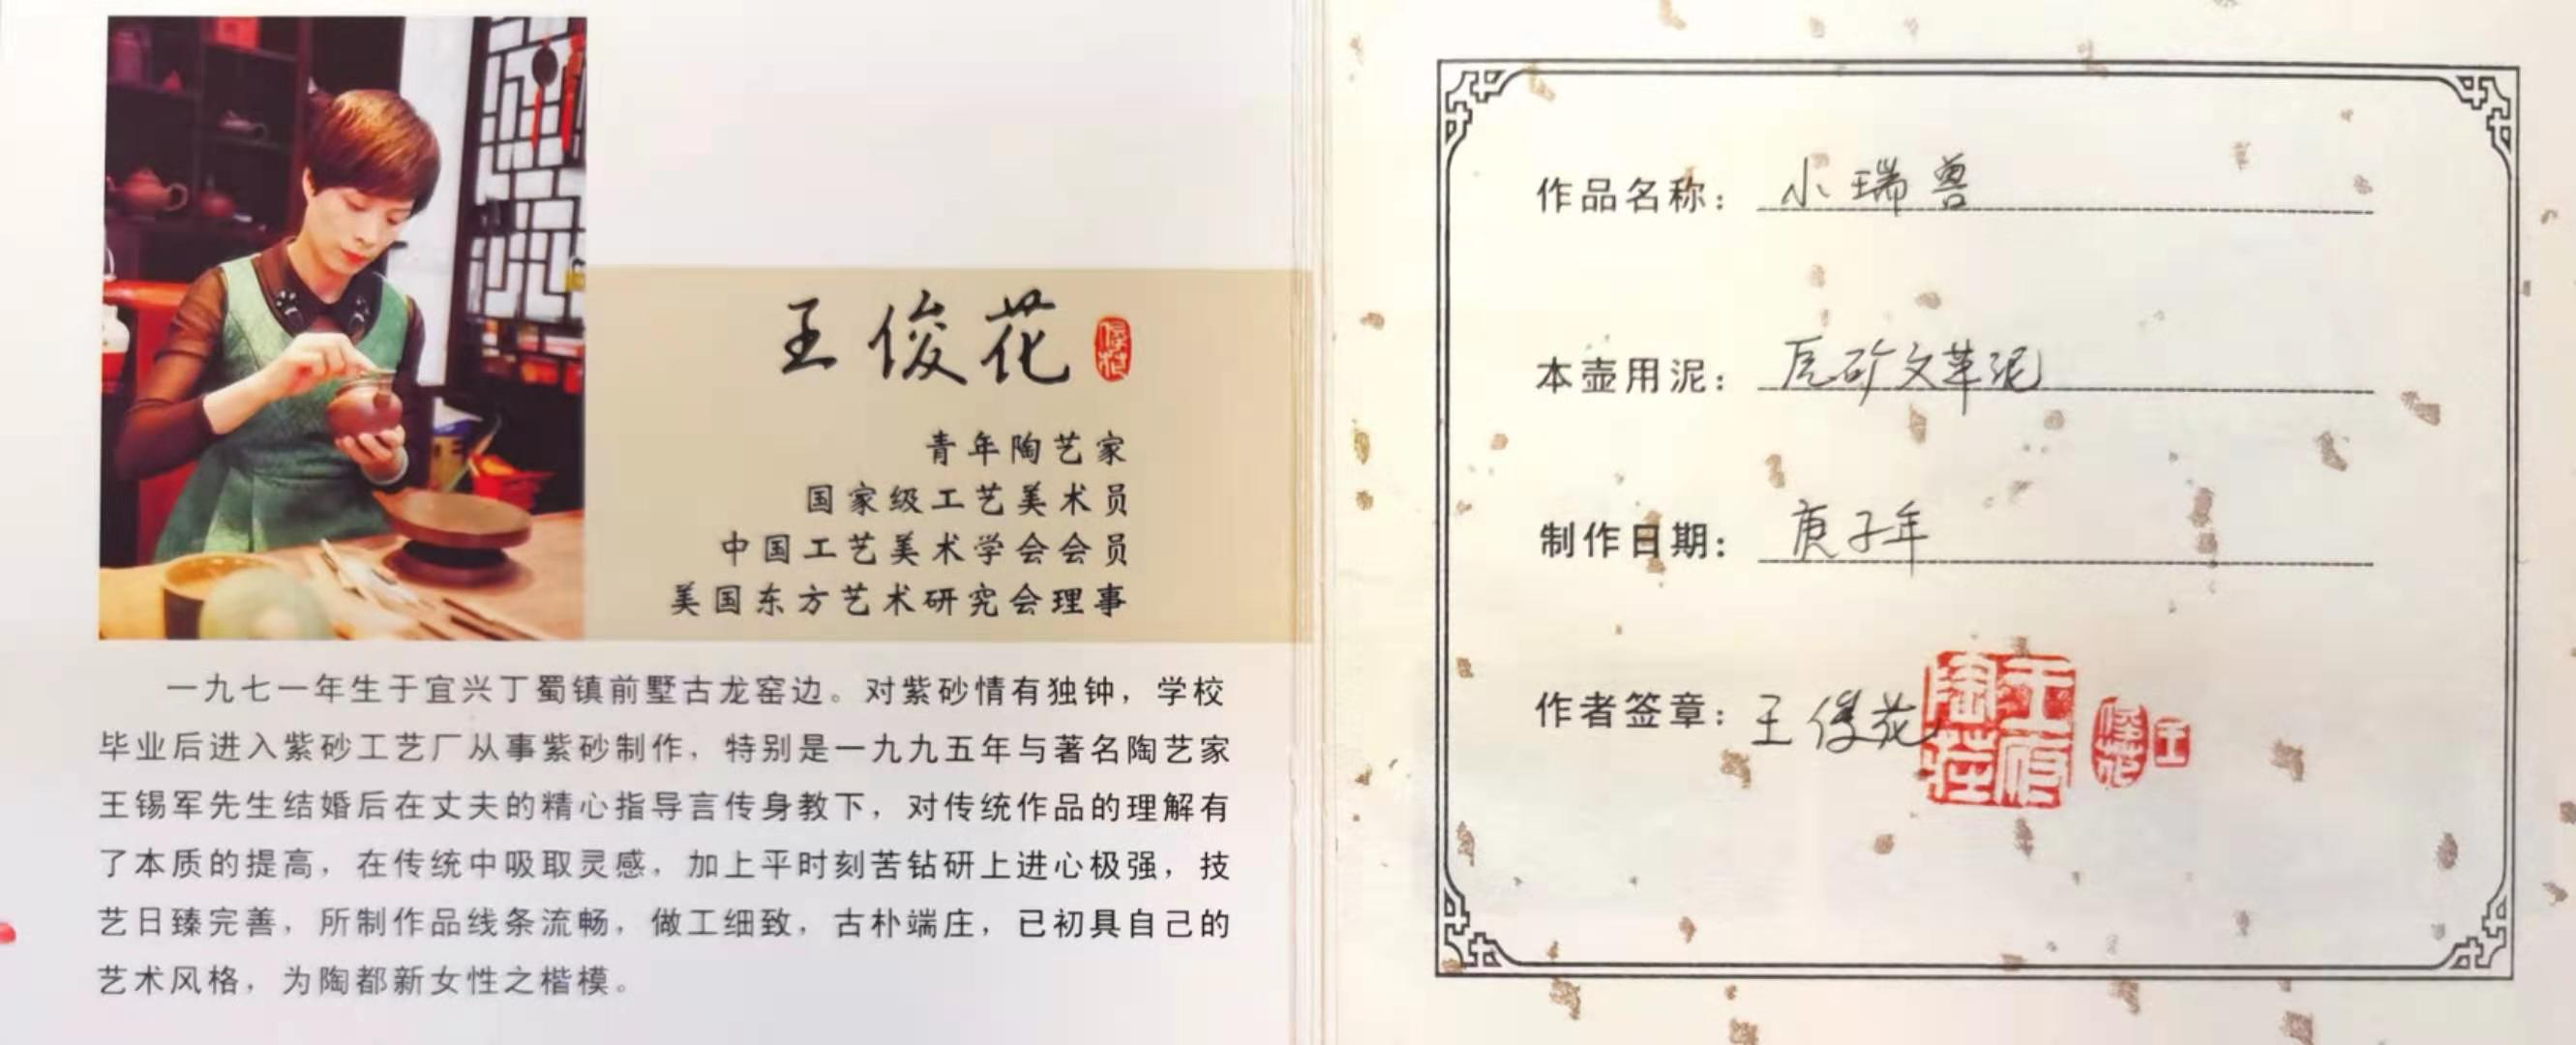 王俊花
俊花
青年陶艺家
国家级工艺美术员
中国工艺美术学会会员
美国东方艺术研究会理事
一九七一年生于宜兴丁蜀镇前墅古龙窑边。对紫砂情有独钟，学校
毕业后进入紫砂工艺厂从事紫砂制作，特别是一九九五年与著名陶艺家
王锡军先生结婚后在丈夫的精心指导言传身教下，对传统作品的理解有
了本质的提高，在传统中吸取灵感，加上平时刻苦钻研上进心极强，技
艺日臻完善，所制作品线条流畅，做工细致，古朴端庄，已初具自己的
艺术风格，为陶都新女性之楷模。
作品名称：小瑞兽
本壶用泥：底矿文革泥
制作日期：庚子年
作者签章：王俊花
王府陶庄
俊花
王